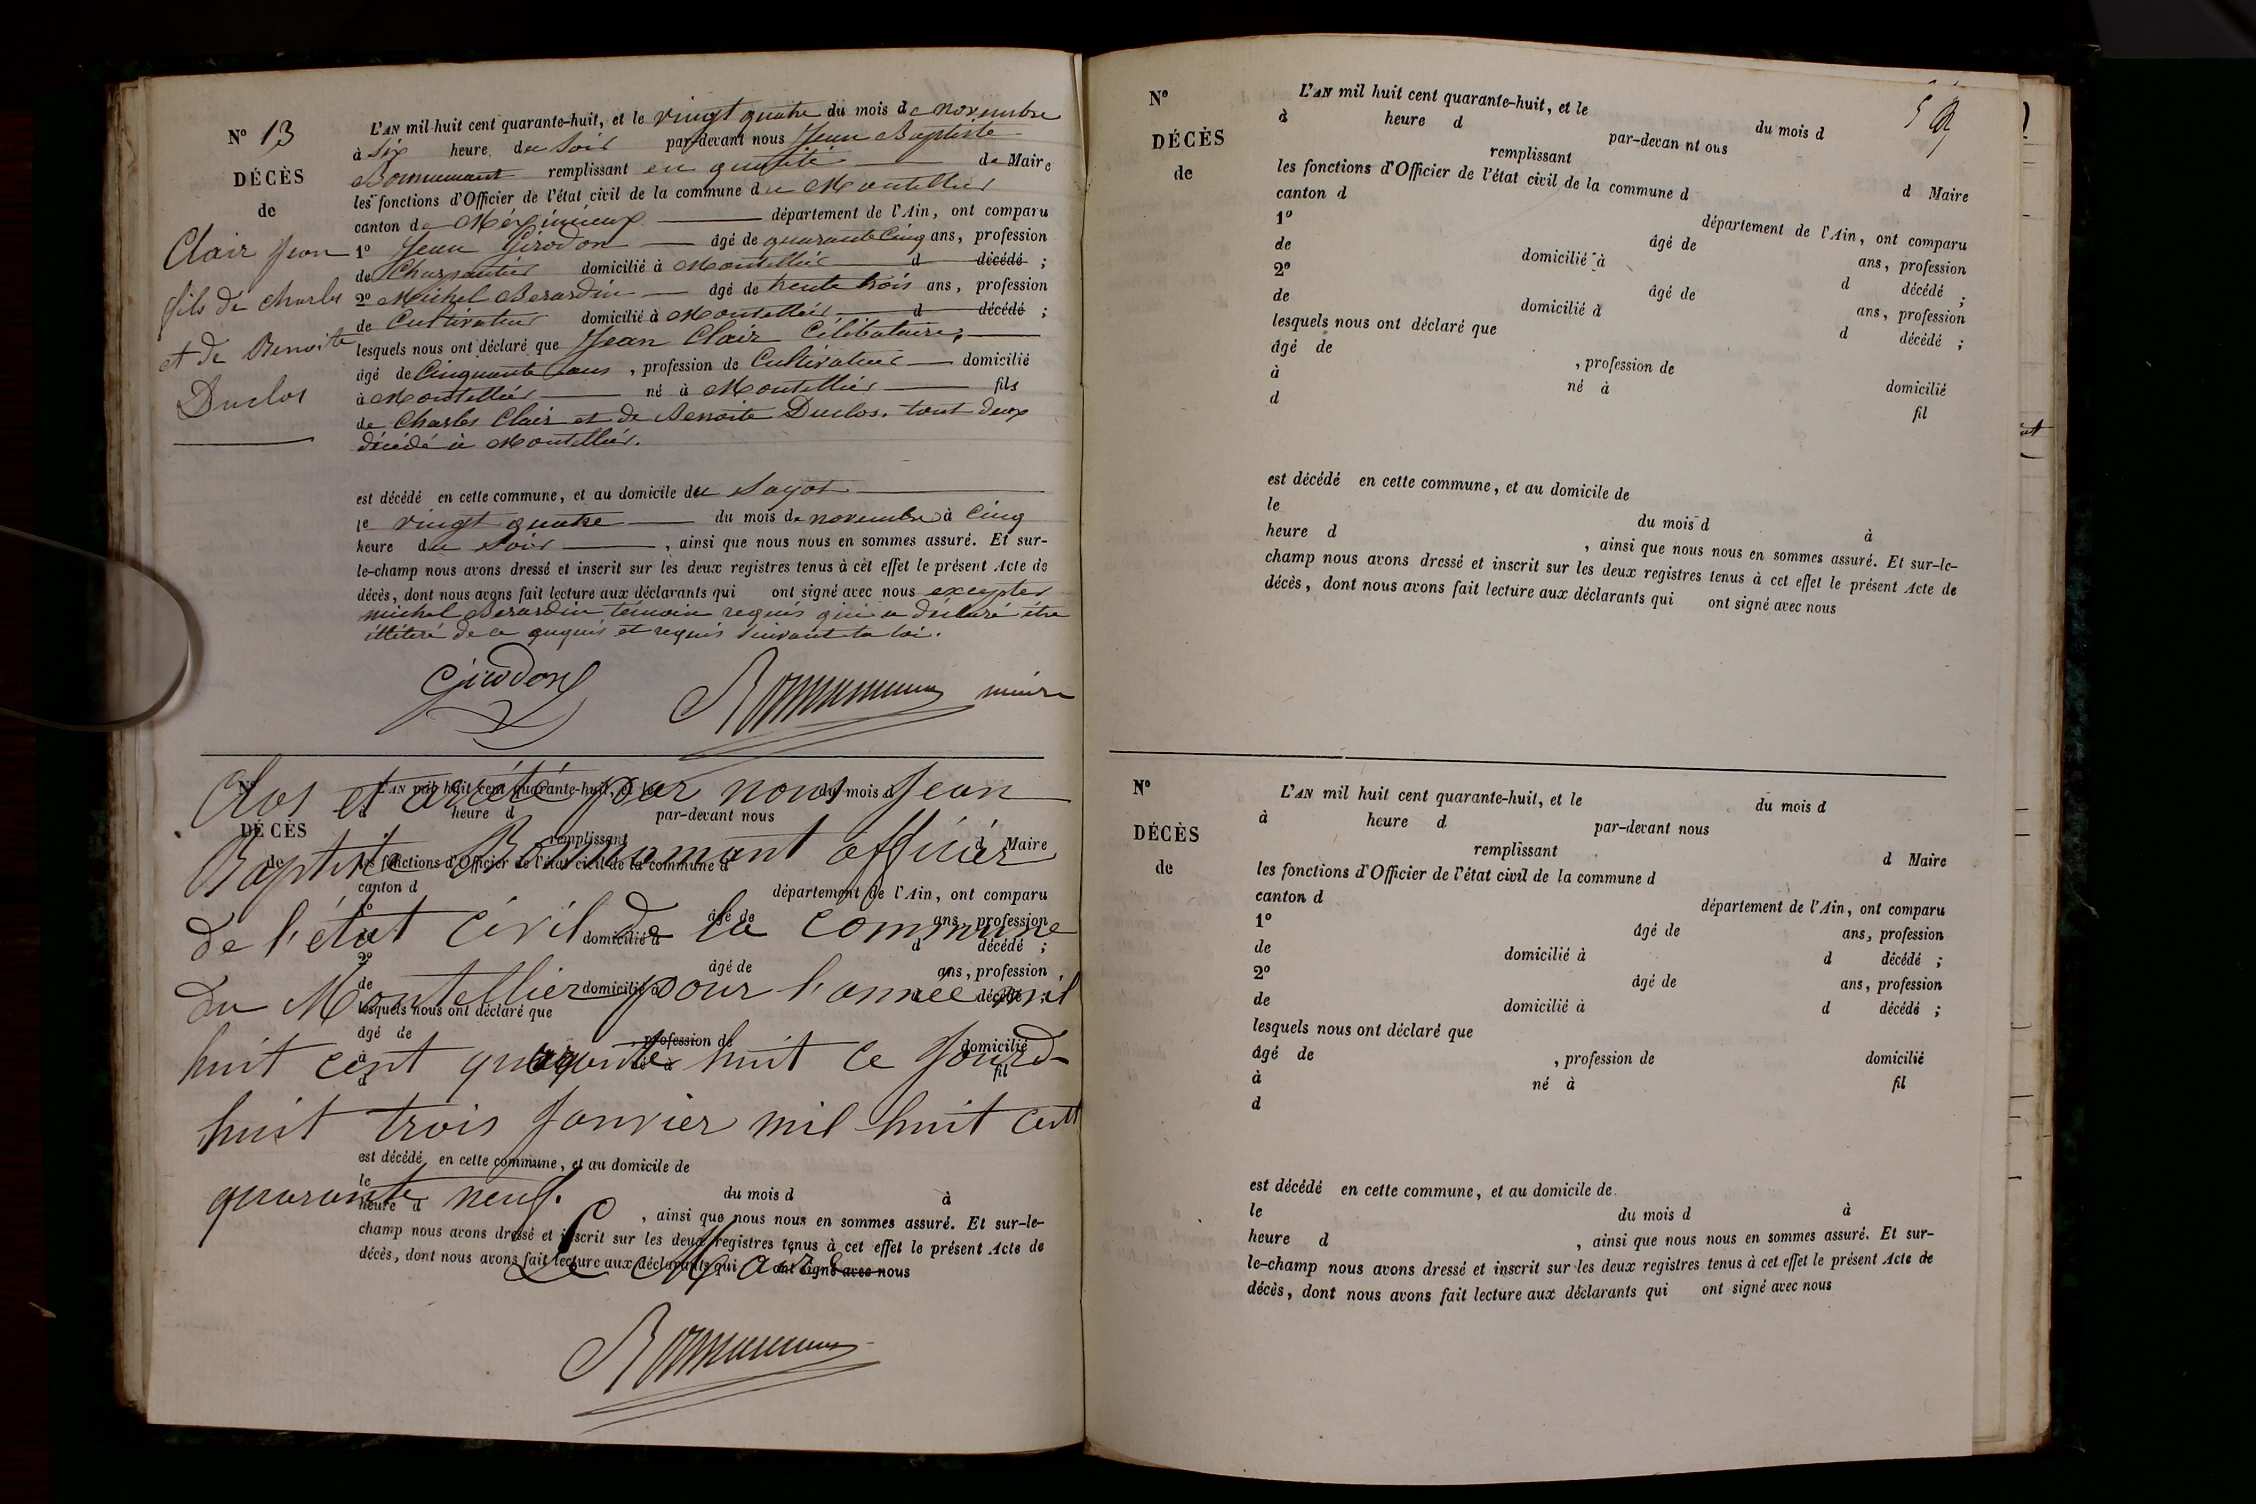 N° 13
DÉCÈS
de
Clair Jean
fils de Charles
et de Benoite
Duclos
L'AN mil huit cent quarante-huit, et le vingt quatre du mois de novembre
à six heure du Soir par-devant nous Jean Baptiste
Bonnamant remplissant en qualité de Maire
les fonctions d'Officier de l'état civil de la commune du Montellier
canton de Méximieux département de l'Ain, ont comparu
1° Jean Girodon âgé de quarante Cinq ans, profession
de Charpantier domicilié à Montellier d décédé ;
2° Michel Berardin âgé de trente trois ans, profession
de Cultivateur domicilié à Montellier d décédé ;
lesquels nous ont déclaré que Jean Clair Célibataire,
âgé de Cinquante ans , profession de Cultivateur domicilié
à Montellier né à Montellier fils
de Charles Clair et de Benoite Duclos. tout deux
décédé à Montellier.
est décédé en cette commune, et au domicile du Sayot
le vingt quatre du mois de novembre à Cinq
heure du Soir , ainsi que nous nous en sommes assuré. Et sur-
le-champ nous avons dressé et inscrit sur les deux registres tenus à cet effet le présent Acte de
décès, dont nous avons fait lecture aux déclarants qui ont signé avec nous excepter
michel Berardin témoin requis qui a déclaré être
illiteré de ce enquis et requis suivant la loi.
Girodon
Bonnamant maire
N°
DÉCÈS
de
L'AN mil huit cent quarante-huit, et le du mois d
à heure d par-devant nous
remplissant d Maire
les fonctions d'Officier de l'état civil de la commune d
canton d département de l'Ain, ont comparu
1° âgé de ans, profession
de domicilié à d décédé ;
2° âgé de ans, profession
de domicilié à d décédé ;
lesquels nous ont déclaré que
âgé de , profession de domicilié
à né à fil
d
est décédé en cette commune, et au domicile de
le du mois d à
heure d , ainsi que nous nous en sommes assuré. Et sur-le-
champ nous avons dressé et inscrit sur les deux registres tenus à cet effet le présent Acte de
décès, dont nous avons fait lecture aux déclarants qui ont signé avec nous
Clos et arrété par nous Jean
Baptiste Bonnamant officier
de l'état civil de la commune
du Montellier pour l'année mil
huit cent quarante huit ce jourd-
huit trois Janvier mil huit cent
quarante neuf.
Le Maire
Bonnamant
N°
DÉCÈS
de
L'AN mil huit cent quarante-huit, et le du mois d
à heure d par-devan nt ous
remplissant d Maire
les fonctions d'Officier de l'état civil de la commune d
canton d département de l'Ain, ont comparu
1° âgé de ans, profession
de domicilié à d décédé ;
2° âgé de ans, profession
de domicilié à d décédé ;
lesquels nous ont déclaré que
âgé de , profession de domicilié
à né à fil
d
est décédé en cette commune, et au domicile de
le du mois d à
heure d , ainsi que nous nous en sommes assuré. Et sur-le-
champ nous avons dressé et inscrit sur les deux registres tenus à cet effet le présent Acte de
décès, dont nous avons fait lecture aux déclarants qui ont signé avec nous
N°
DÉCÈS
de
L'AN mil huit cent quarante-huit, et le du mois d
à heure d par-devant nous
remplissant d Maire
les fonctions d'Officier de l'état civil de la commune d
canton d département de l'Ain, ont comparu
1° âgé de ans, profession
de domicilié à d décédé ;
2° âgé de ans, profession
de domicilié à d décédé ;
lesquels nous ont déclaré que
âgé de , profession de domicilié
à né à fil
d
est décédé en cette commune, et au domicile de
le du mois d à
heure d , ainsi que nous nous en sommes assuré. Et sur-
le-champ nous avons dressé et inscrit sur les deux registres tenus à cet effet le présent Acte de
décès, dont nous avons fait lecture aux déclarants qui ont signé avec nous